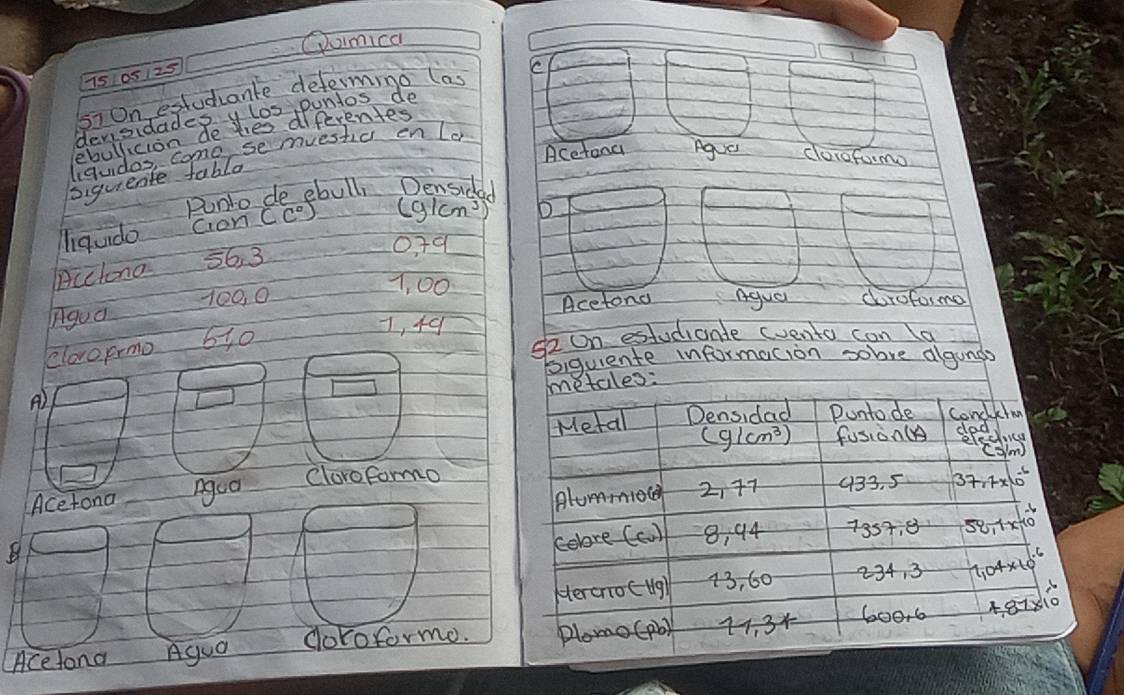 Quimica
15/05/25
51 Un estudiante determino las
densidades y los puntos de
ebullicion de tres diferentes
liquidos, como se muestra en la
siguiente tabla
liquido Punto de ebulli Densidad
cion (C°) (g/cm³)
Acetona 56,3 0,79
Agua 100,0 1,00
cloroformo 61,0 1,49
A)
Acetona Agua Cloroformo
B
Acetona Agua cloroformo.
C
Acetona Agua cloroformo
D
Acetona Agua cloroformo
52 Un estudiante cuenta con la
siguiente información sobre algunos
metales:
Metal Densidad Punto de
(g/cm³) fusión(K)
(S/m)
Aluminio 2,77 933,5 37,7x10⁻⁶
cobre (Cu) 8,94 1357,8 58,1x10⁻⁶
Mercurio (Hg) 13,60 234,3 1,04x10⁻⁶
Plomo (pb) 600,6